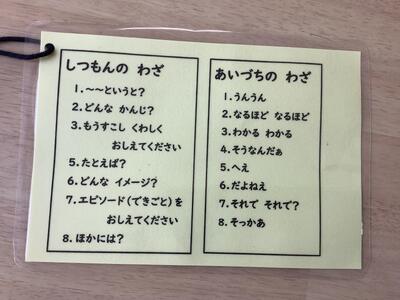 しつもんの わざ
1.〜〜というと?
2.どんな かんじ?
3.もうすこし くわしく
おしえてください
5.たとえば?
6.どんな イメージ?
7.エピソード(できごと)を
おしえてください
8.ほかには?
あいづちの わざ
1.うんうん
2.なるほど なるほど
3.わかる わかる
4.そうなんだぁ
5.へえ
6.だよねえ
7.それで それで?
8.そっかあ